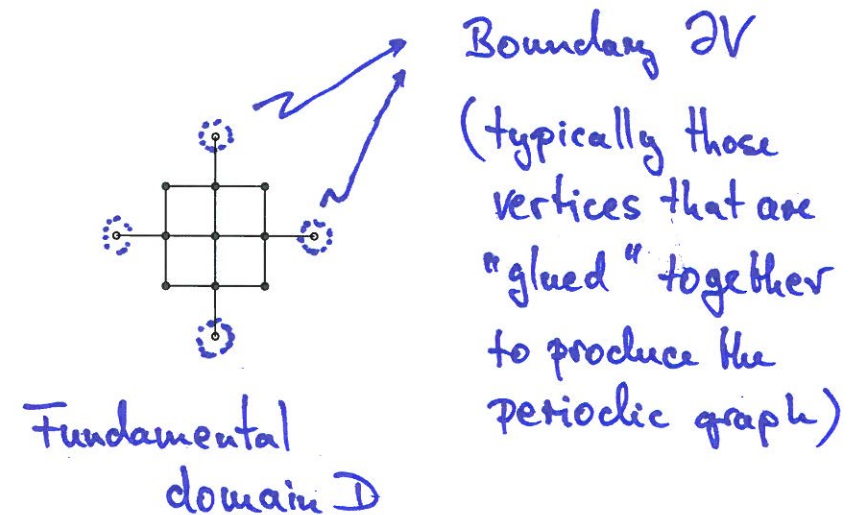 Boundary ∂V
(typically those
vertices that are
"glued" together
to produce the
periodic graph)
Fundamental
domain D